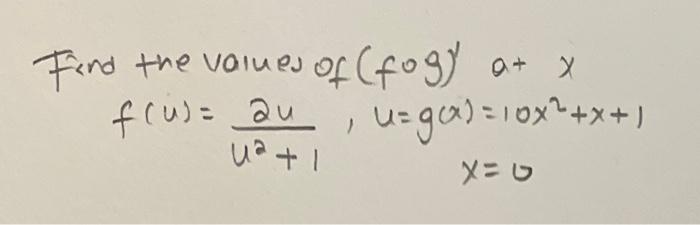 Find the values of (fog)' at x
f(u) = 2u / u² + 1 , u = g(x) = 10x² + x + 1
x = 0